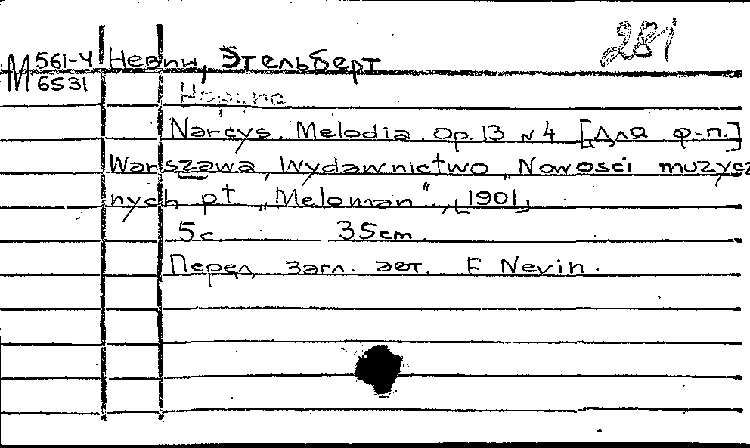 281
М 561-4 Невин, Этельберт
6531
Narcys. Melodia. Op. 13 N 4 [Для ф-п.]
Warszawa, Wydawnictwo „Nowości muzycz
nych p t „Meloman“, [1901]
5 с. 35 cm
Перед загл. авт. E Nevin.